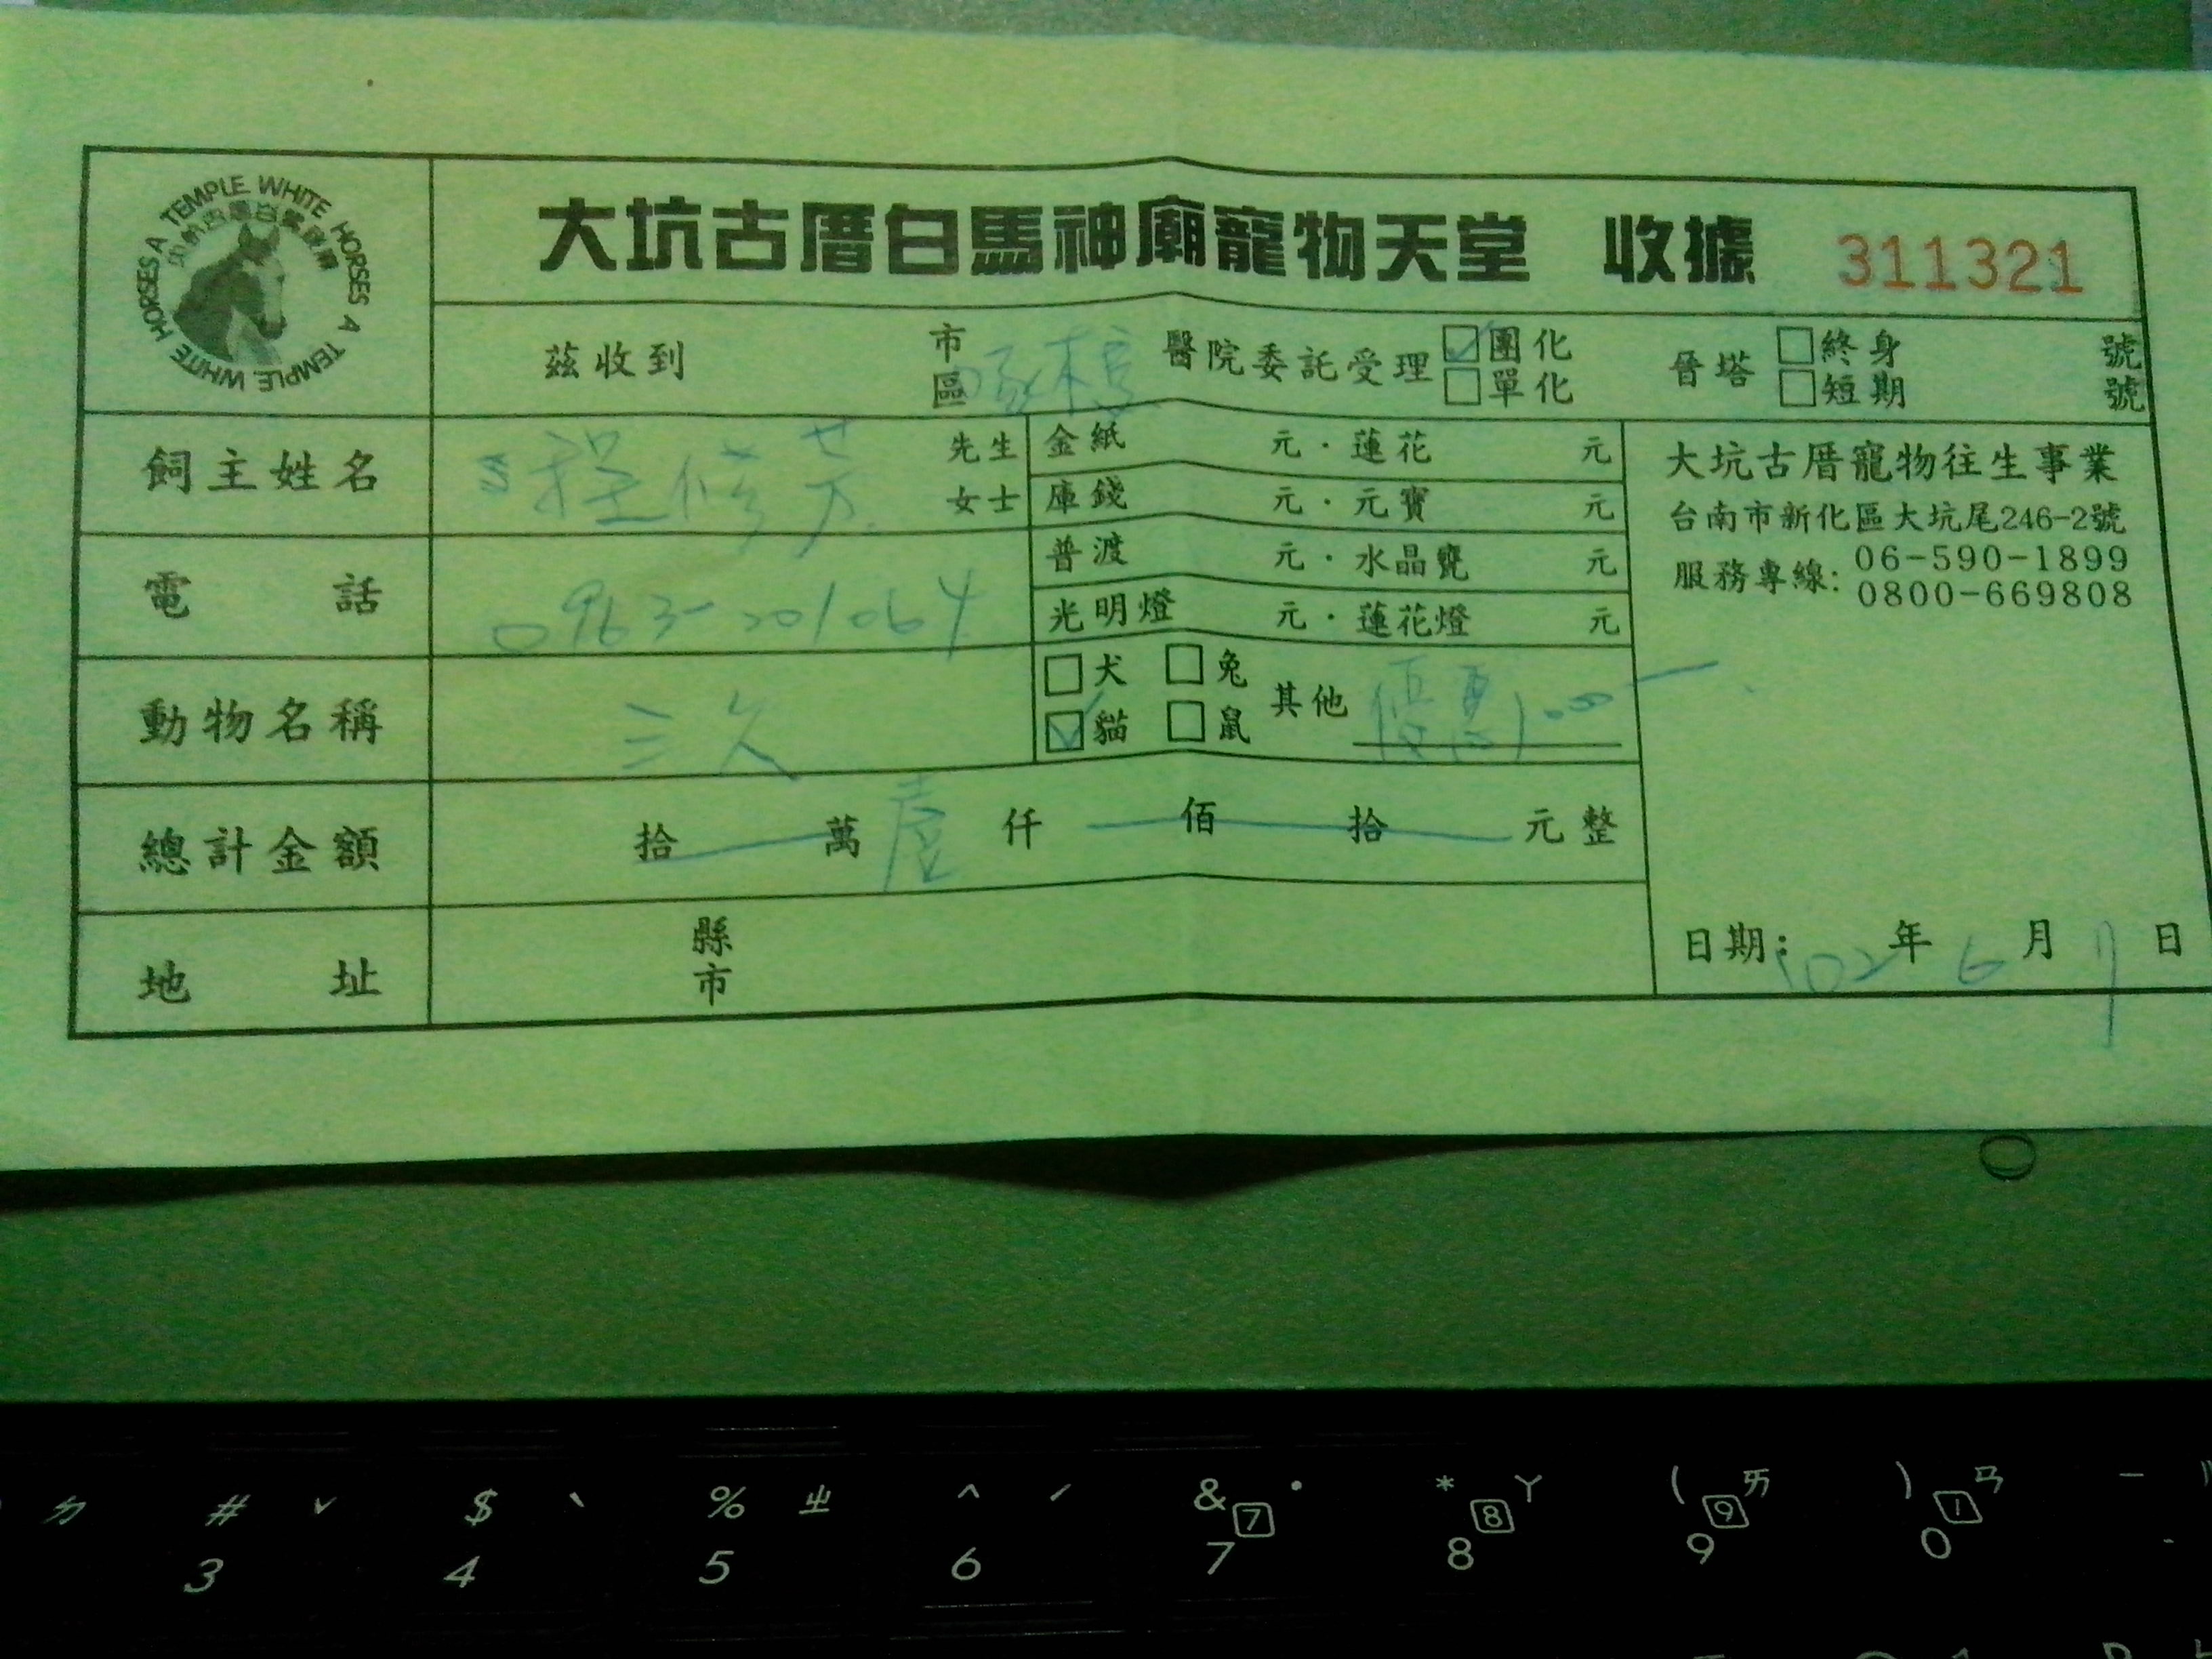 A TEMPLE WHITE HORSES A TEMPLE WHITE HORSES
大坑古厝白馬神廟寵物天堂 收據 311321
茲收到 市 區 醫院委託受理 團化 單化 晉塔 終身 號 短期 號
飼主姓名 先生 女士
金紙 元·蓮花 元
庫錢 元·元寶 元
普渡 元·水晶甕 元
光明燈 元·蓮花燈 元
大坑古厝寵物往生事業
台南市新化區大坑尾246-2號
服務專線: 06-590-1899
0800-669808
電話 0963-201064
動物名稱 三久
犬 兔 其他 優惠1000
貓 鼠
總計金額 拾 萬 壹 仟 佰 拾 元整
地址 縣 市
日期: 102 年 6 月 7 日
ㄅ # ˇ $ ˋ % ㄓ ^ ˊ & 7 ˙ * 8 ㄚ ( 9 ㄞ ) ㄢ
3 4 5 6 7 8 9 0 -